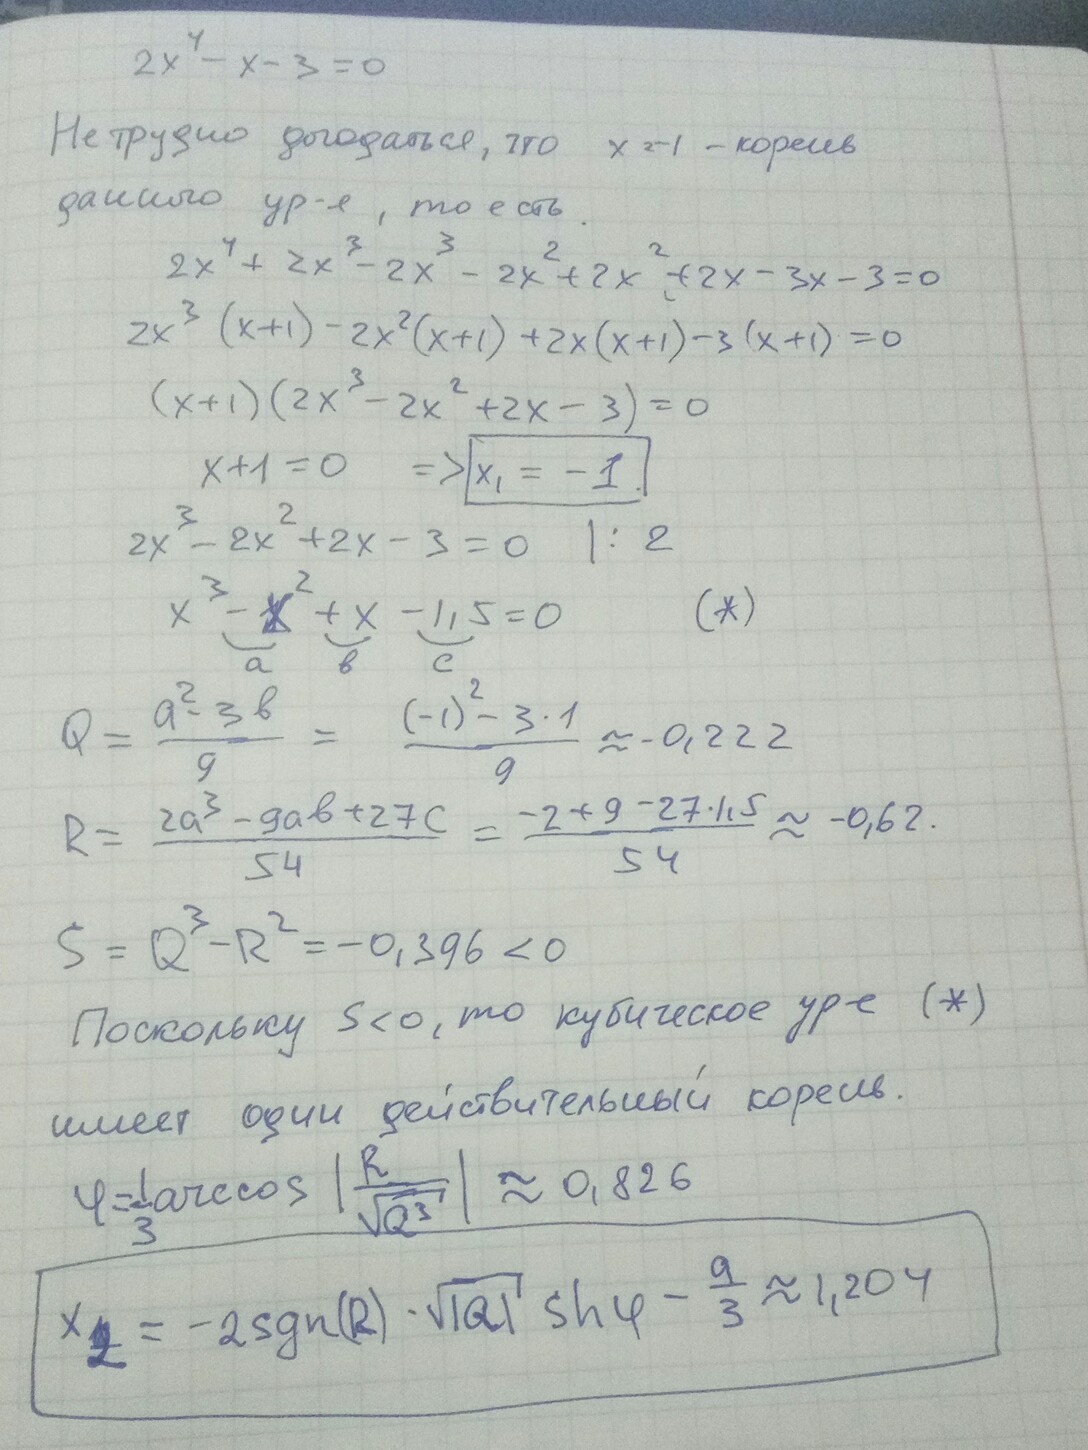 2x⁴ - x - 3 = 0
Не трудно догодаться, что x=-1 - корень
данного ур-я, то есть.
2x⁴ + 2x³ - 2x³ - 2x² + 2x² + 2x - 3x - 3 = 0
2x³ (x+1) - 2x²(x+1) + 2x(x+1) - 3(x+1) = 0
(x+1)(2x³ - 2x² + 2x - 3) = 0
x+1 = 0 => x₁ = -1.
2x³ - 2x² + 2x - 3 = 0 |: 2
x³ - x² + x - 1,5 = 0 (*)
a в c
Q = (a² - 3в)/9 = ((-1)² - 3·1)/9 ≈ -0,222
R = (2a³ - 9aв + 27c)/54 = (-2 + 9 - 27·1,5)/54 ≈ -0,62.
S = Q³ - R² = -0,396 < 0
Поскольку S<0, то кубическое ур-е (*)
имеет один действительный корень.
φ = 1/3 arccos |R/√Q³| ≈ 0,826
x₂ = -2sgn(R)·√|Q| sh φ - a/3 ≈ 1,204